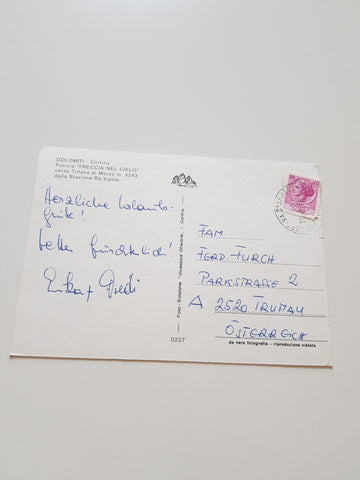 DOLOMITI - Cortina
Funivia "FRECCIA NEL CIELO"
verso Tofana di Mezzo m. 3243
dalla Stazione Ra Valles
Herzliche Urlaubs-
grüße!
Erika + Fredi
Foto - Edizione "Giuseppe Ghedina" - Cortina
0227
FAM.
FERD. FURCH
PARKSTRASSE 2
A 2520 TRUMAU
ÖSTERREICH
da vera fotografia - riproduzione vietata